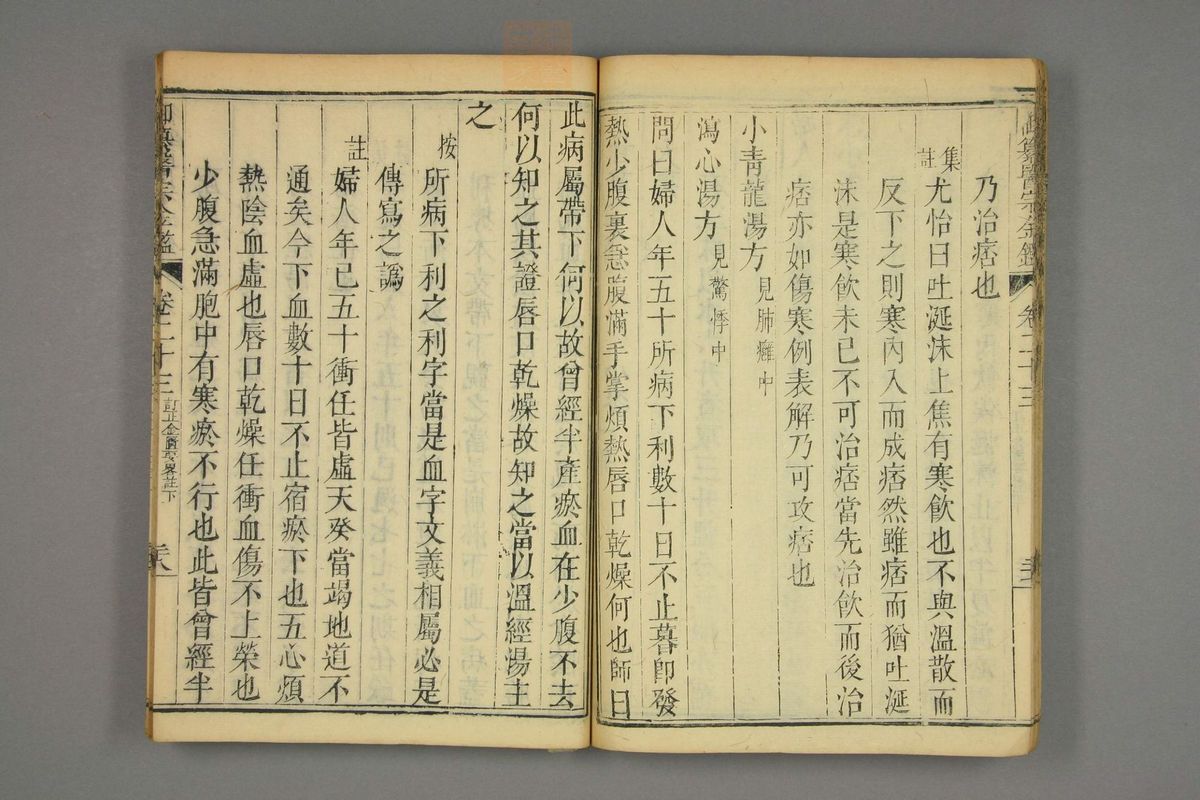 乃治痞也
集註
尤怡曰吐涎沫上焦有寒飲也不與溫散而
反下之則寒內入而成痞然雖痞而猶吐涎
沫是寒飲未已不可治痞當先治飲而後治
痞亦如傷寒例表解乃可攻痞也
小青龍湯方 見肺癰中
瀉心湯方 見驚悸中
問曰婦人年五十所病下利數十日不止暮卽發
熱少腹裏急腹滿手掌煩熱唇口乾燥何也師曰
此病屬帶下何以故曾經半產瘀血在少腹不去
何以知之其證唇口乾燥故知之當以溫經湯主
之
按
所病下利之利字當是血字文義相屬必是
傳寫之譌
註
婦人年已五十衝任皆虛天癸當竭地道不
通矣今下血數十日不止宿瘀下也五心煩
熱陰血虛也唇口乾燥任衝血傷不上榮也
少腹急滿胞中有寒瘀不行也此皆曾經半
卷二十三 訂正金匱要畧註下